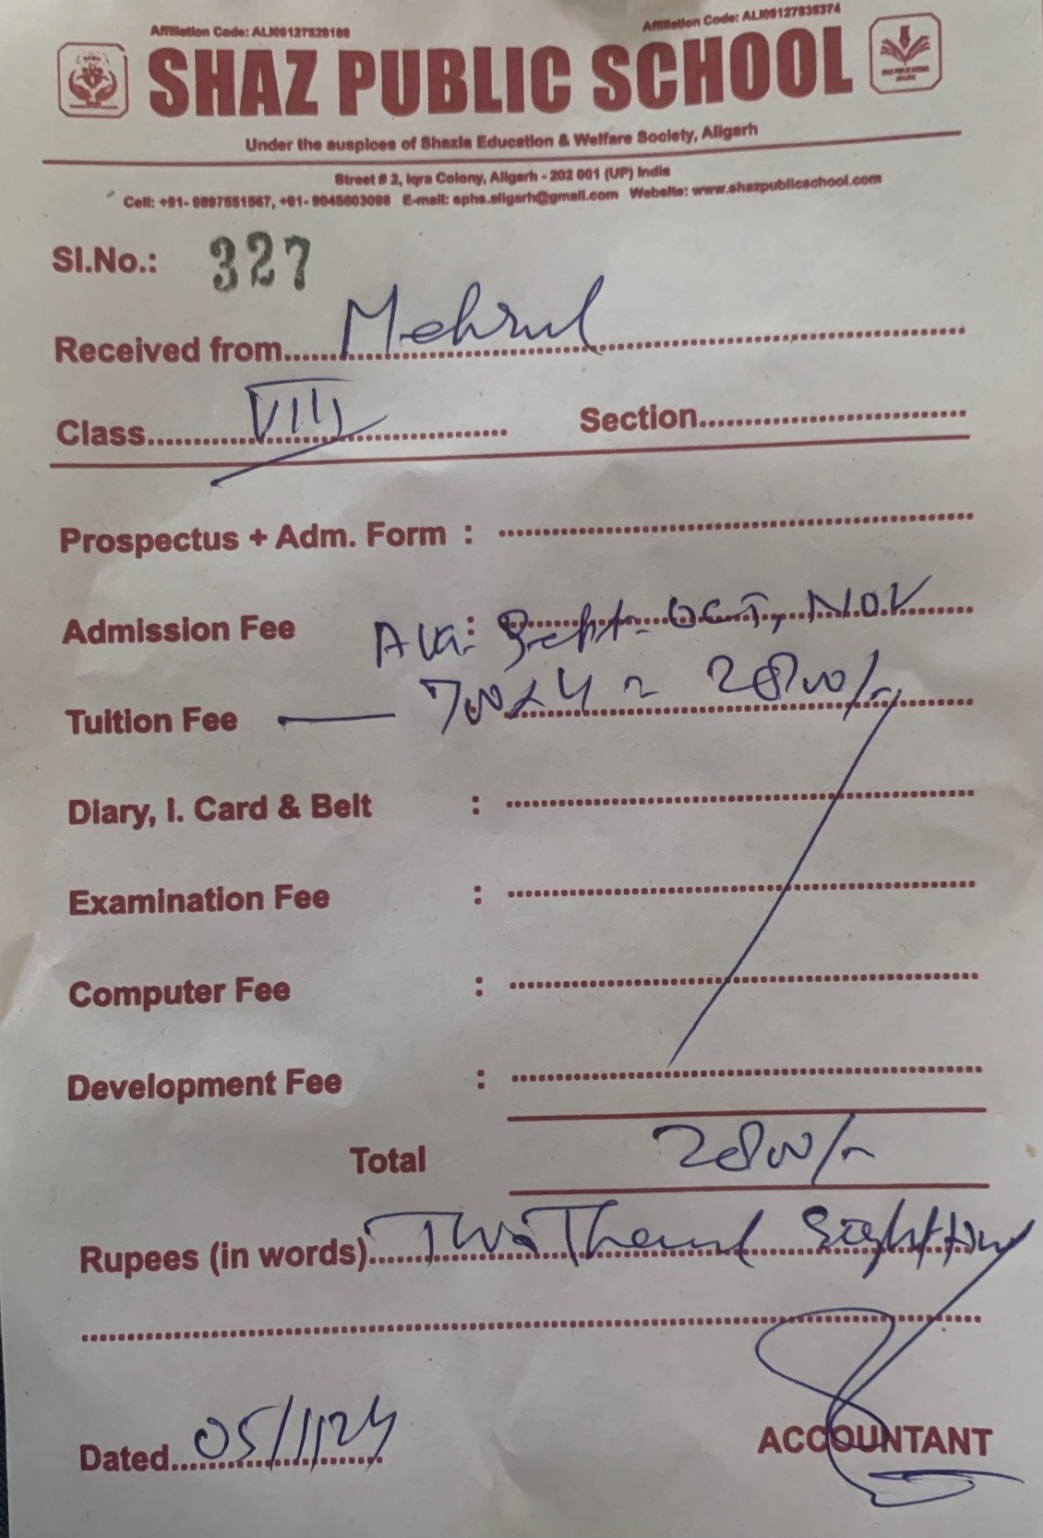 Affiliation Code: ALI09127828188 Affiliation Code: ALI09127835374
SHAZ PUBLIC SCHOOL
Under the auspices of Shazia Education & Welfare Society, Aligarh
Street # 2, Iqra Colony, Aligarh - 202 001 (UP) India
Cell: +91- 9897551567, +91- 9045603098 E-mail: sphs.aligarh@gmail.com Website: www.shazpublicschool.com
Sl.No.: 327
Received from......Mehrul
Class.........VIII Section
Prospectus + Adm. Form :
Admission Fee : Sept. OCT, NOV
Tuition Fee — 700x4 = 2800/-
Diary, I. Card & Belt :
Examination Fee :
Computer Fee :
Development Fee :
Total 2800/-
Rupees (in words) Two Thousand Eight Hun
Dated 05/11/24 ACCOUNTANT